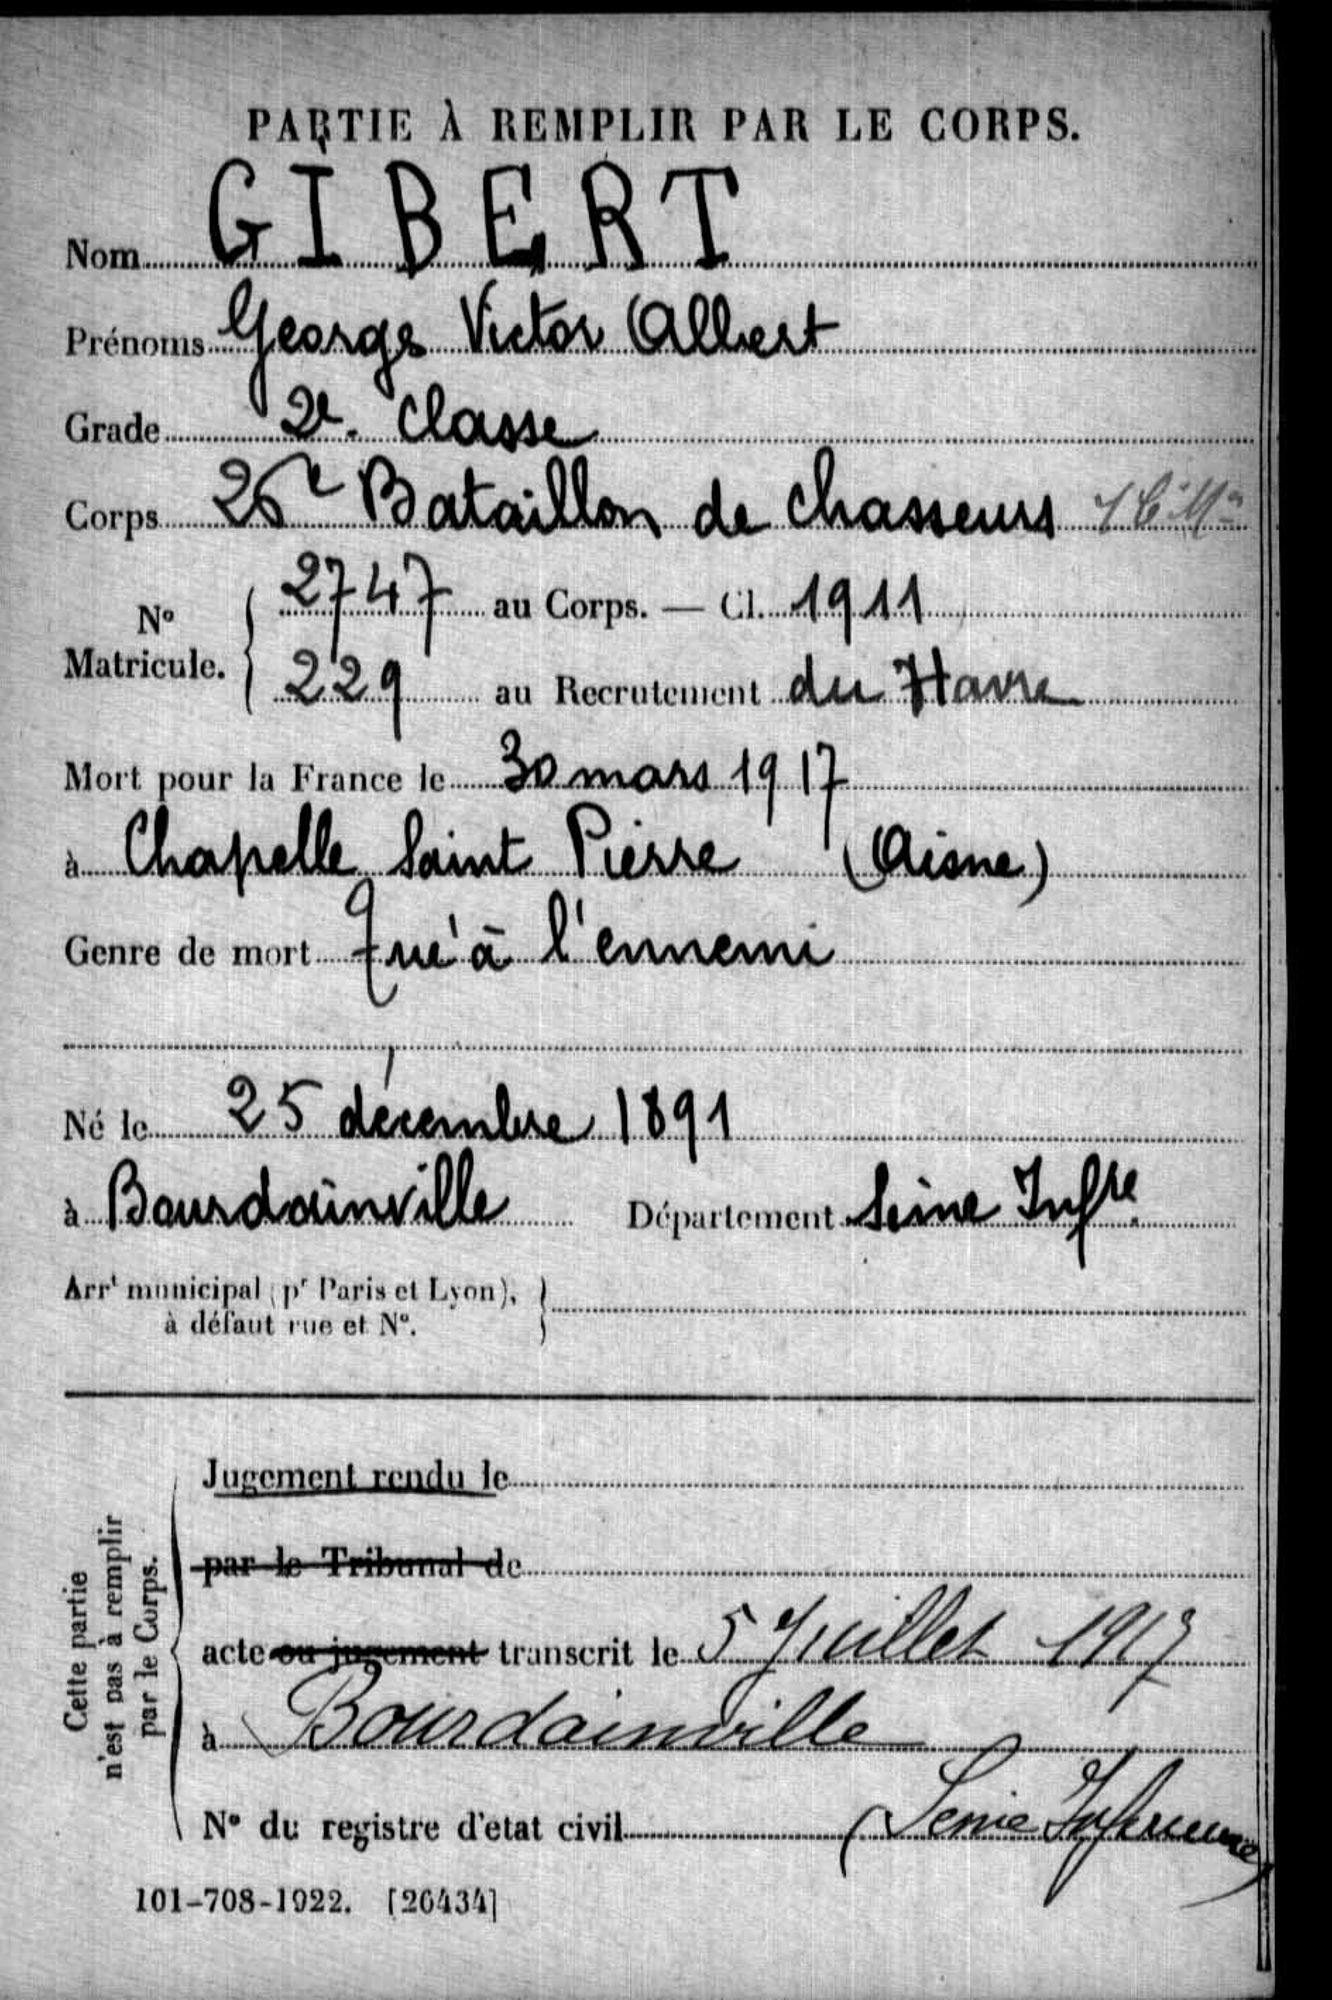 PARTIE À REMPLIR PAR LE CORPS.
Nom GIBERT
Prénoms George Victor Albert
Grade 2e. classe
Corps 26e Bataillon de chasseurs
No Matricule. 2747 au Corps. — Cl. 1911
229 au Recrutement du Havre
Mort pour la France le 30 mars 1917
à Chapelle Saint Pierre (Aisne)
Genre de mort Tué à l'ennemi
Né le 25 décembre 1891
à Bourdainville Département Seine Infre
Arrt municipal (pr Paris et Lyon),
à défaut rue et No.
Cette partie
n'est pas à remplir
par le Corps.
Jugement rendu le
par le Tribunal de
acte ou jugement transcrit le 5 Juillet 1917
à Bourdainville
No du registre d'etat civil (Seine Inferieure)
101-708-1922. [26434]